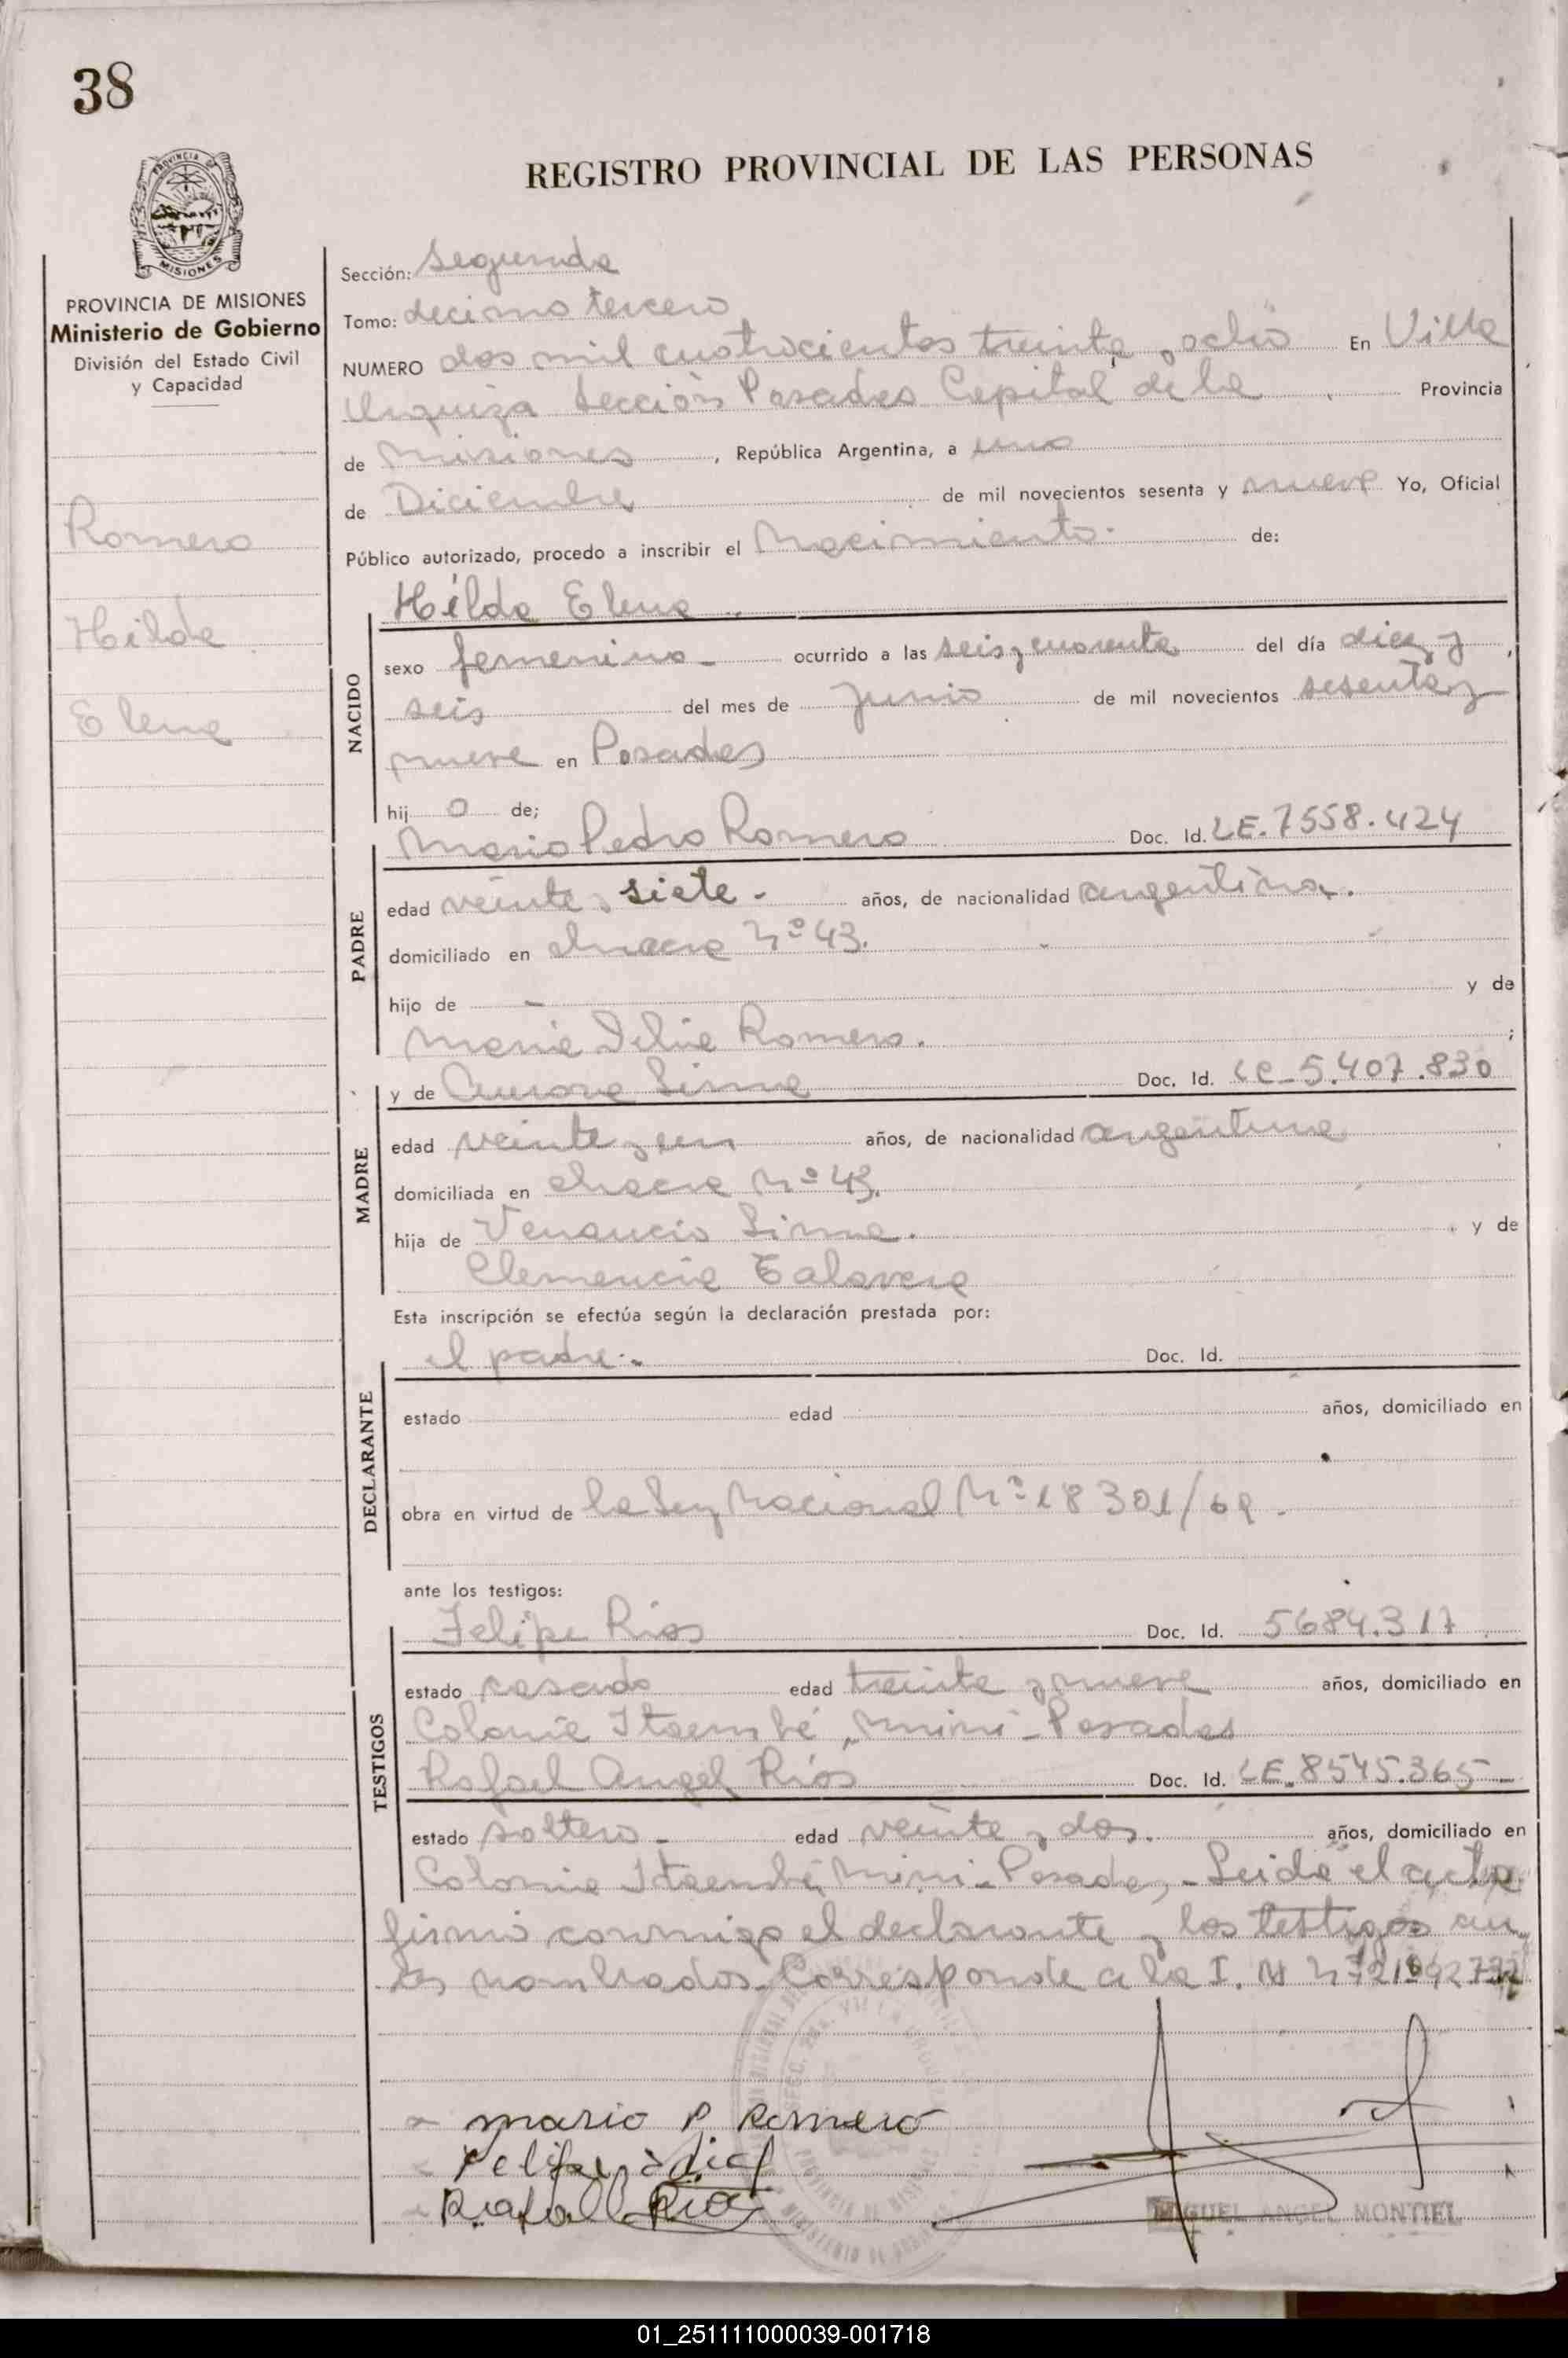 38
REGISTRO PROVINCIAL DE LAS PERSONAS
PROVINCIA DE MISIONES
MISIONES
PROVINCIA DE MISIONES
Ministerio de Gobierno
División del Estado Civil
y Capacidad
Romero
Hilda
Elena
Sección: Segunda
Tomo: decimo tercero
NUMERO dos mil cuatrocientos treinta y ocho En Villa
Urquiza Sección Posadas Capital de la Provincia
de Misiones, República Argentina, a uno
de Diciembre de mil novecientos sesenta y nueve Yo, Oficial
Público autorizado, procedo a inscribir el Nacimiento de:
Hilda Elena
NACIDO
sexo femenino ocurrido a las seis y cuarenta del día diez y
seis del mes de junio de mil novecientos sesenta y
nueve en Posadas
hij a de;
Mario Pedro Romero Doc. Id. LE. 7558.424
PADRE
edad veinte y siete - años, de nacionalidad argentina.
domiciliado en chacra Nº 43.
hijo de - y de
Maria Romero. ;
y de Aurora Lima Doc. Id. LC - 5.407.830
MADRE
edad veinte y un años, de nacionalidad argentina
domiciliada en chacra Nº 43.
hija de Venancio Lima. y de
Clemencia Talavera
Esta inscripción se efectúa según la declaración prestada por:
el padre. Doc. Id.
DECLARANTE
estado edad años, domiciliado en
obra en virtud de la Ley Nacional Nº 18301/69.
ante los testigos:
Felipe Rios Doc. Id. 5684.317
TESTIGOS
estado casado edad treinta y nueve años, domiciliado en
Colonia Itaembé mini - Posadas
Rafael Angel Rios Doc. Id. LE. 8545.365
estado soltero - edad veinte y dos. años, domiciliado en
Colonia Itaembé Mini - Posadas, - Leida el acta
firmó conmigo el declarante y los testigos an
tes nombrados. Corresponde a la I. N
mario P Romero
Felipe
Rafael Rios
MIGUEL ANGEL MONTIEL
01_251111000039-001718